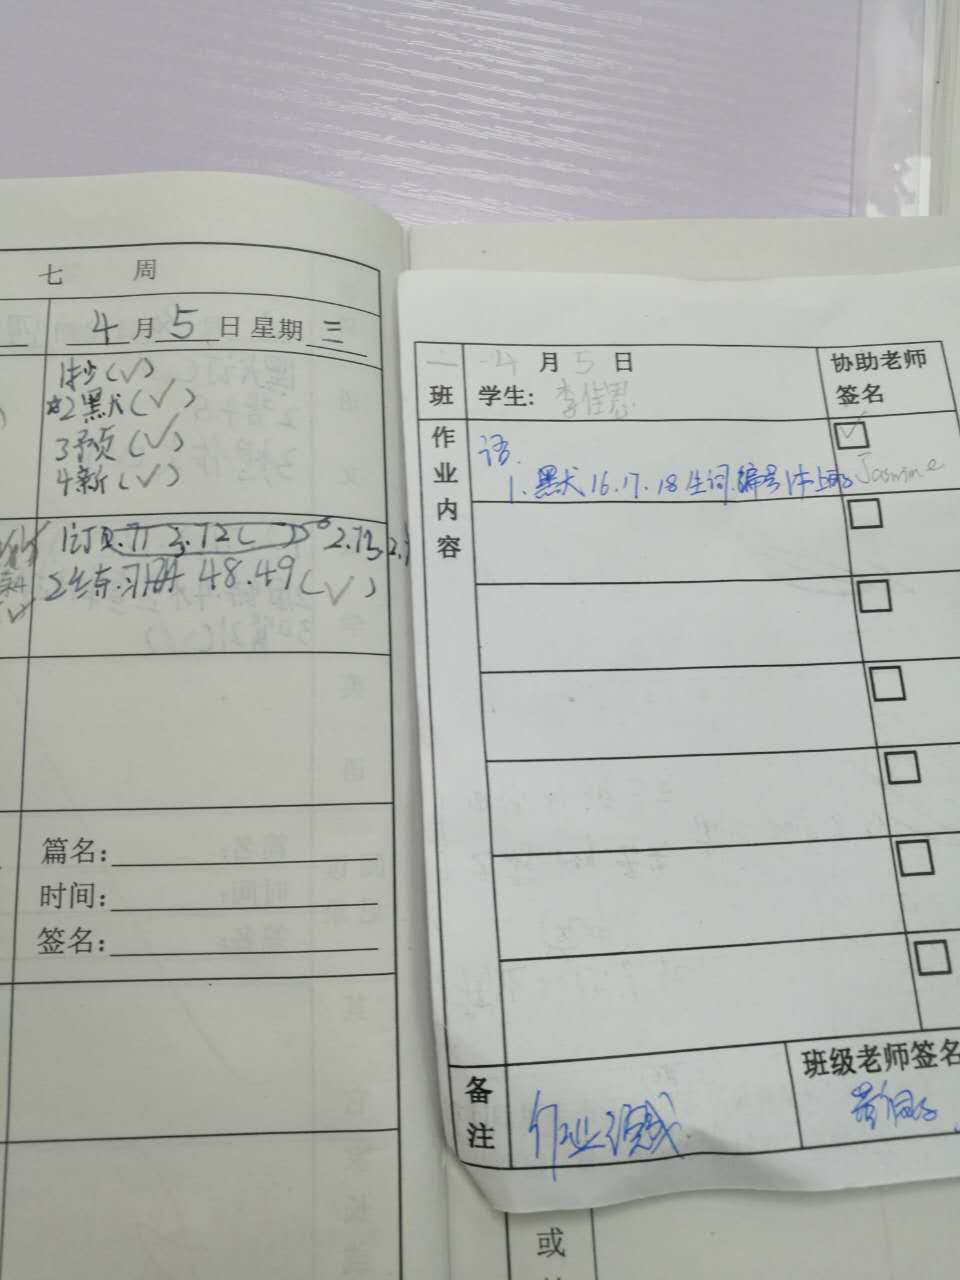 七 周
4月5日 星期三
1抄(√)
☆2默(√)
3预(√)
4新(√)
1订 2.71 2.72( ) 2.73
2练习册 48.49(√)
篇名:
时间:
签名:
二班
4月5日
学生: 李佳
协助老师签名
作业内容
语
1. 默 16.17.18生词.编号
Jasmine
备注
作业
班级老师签名
或